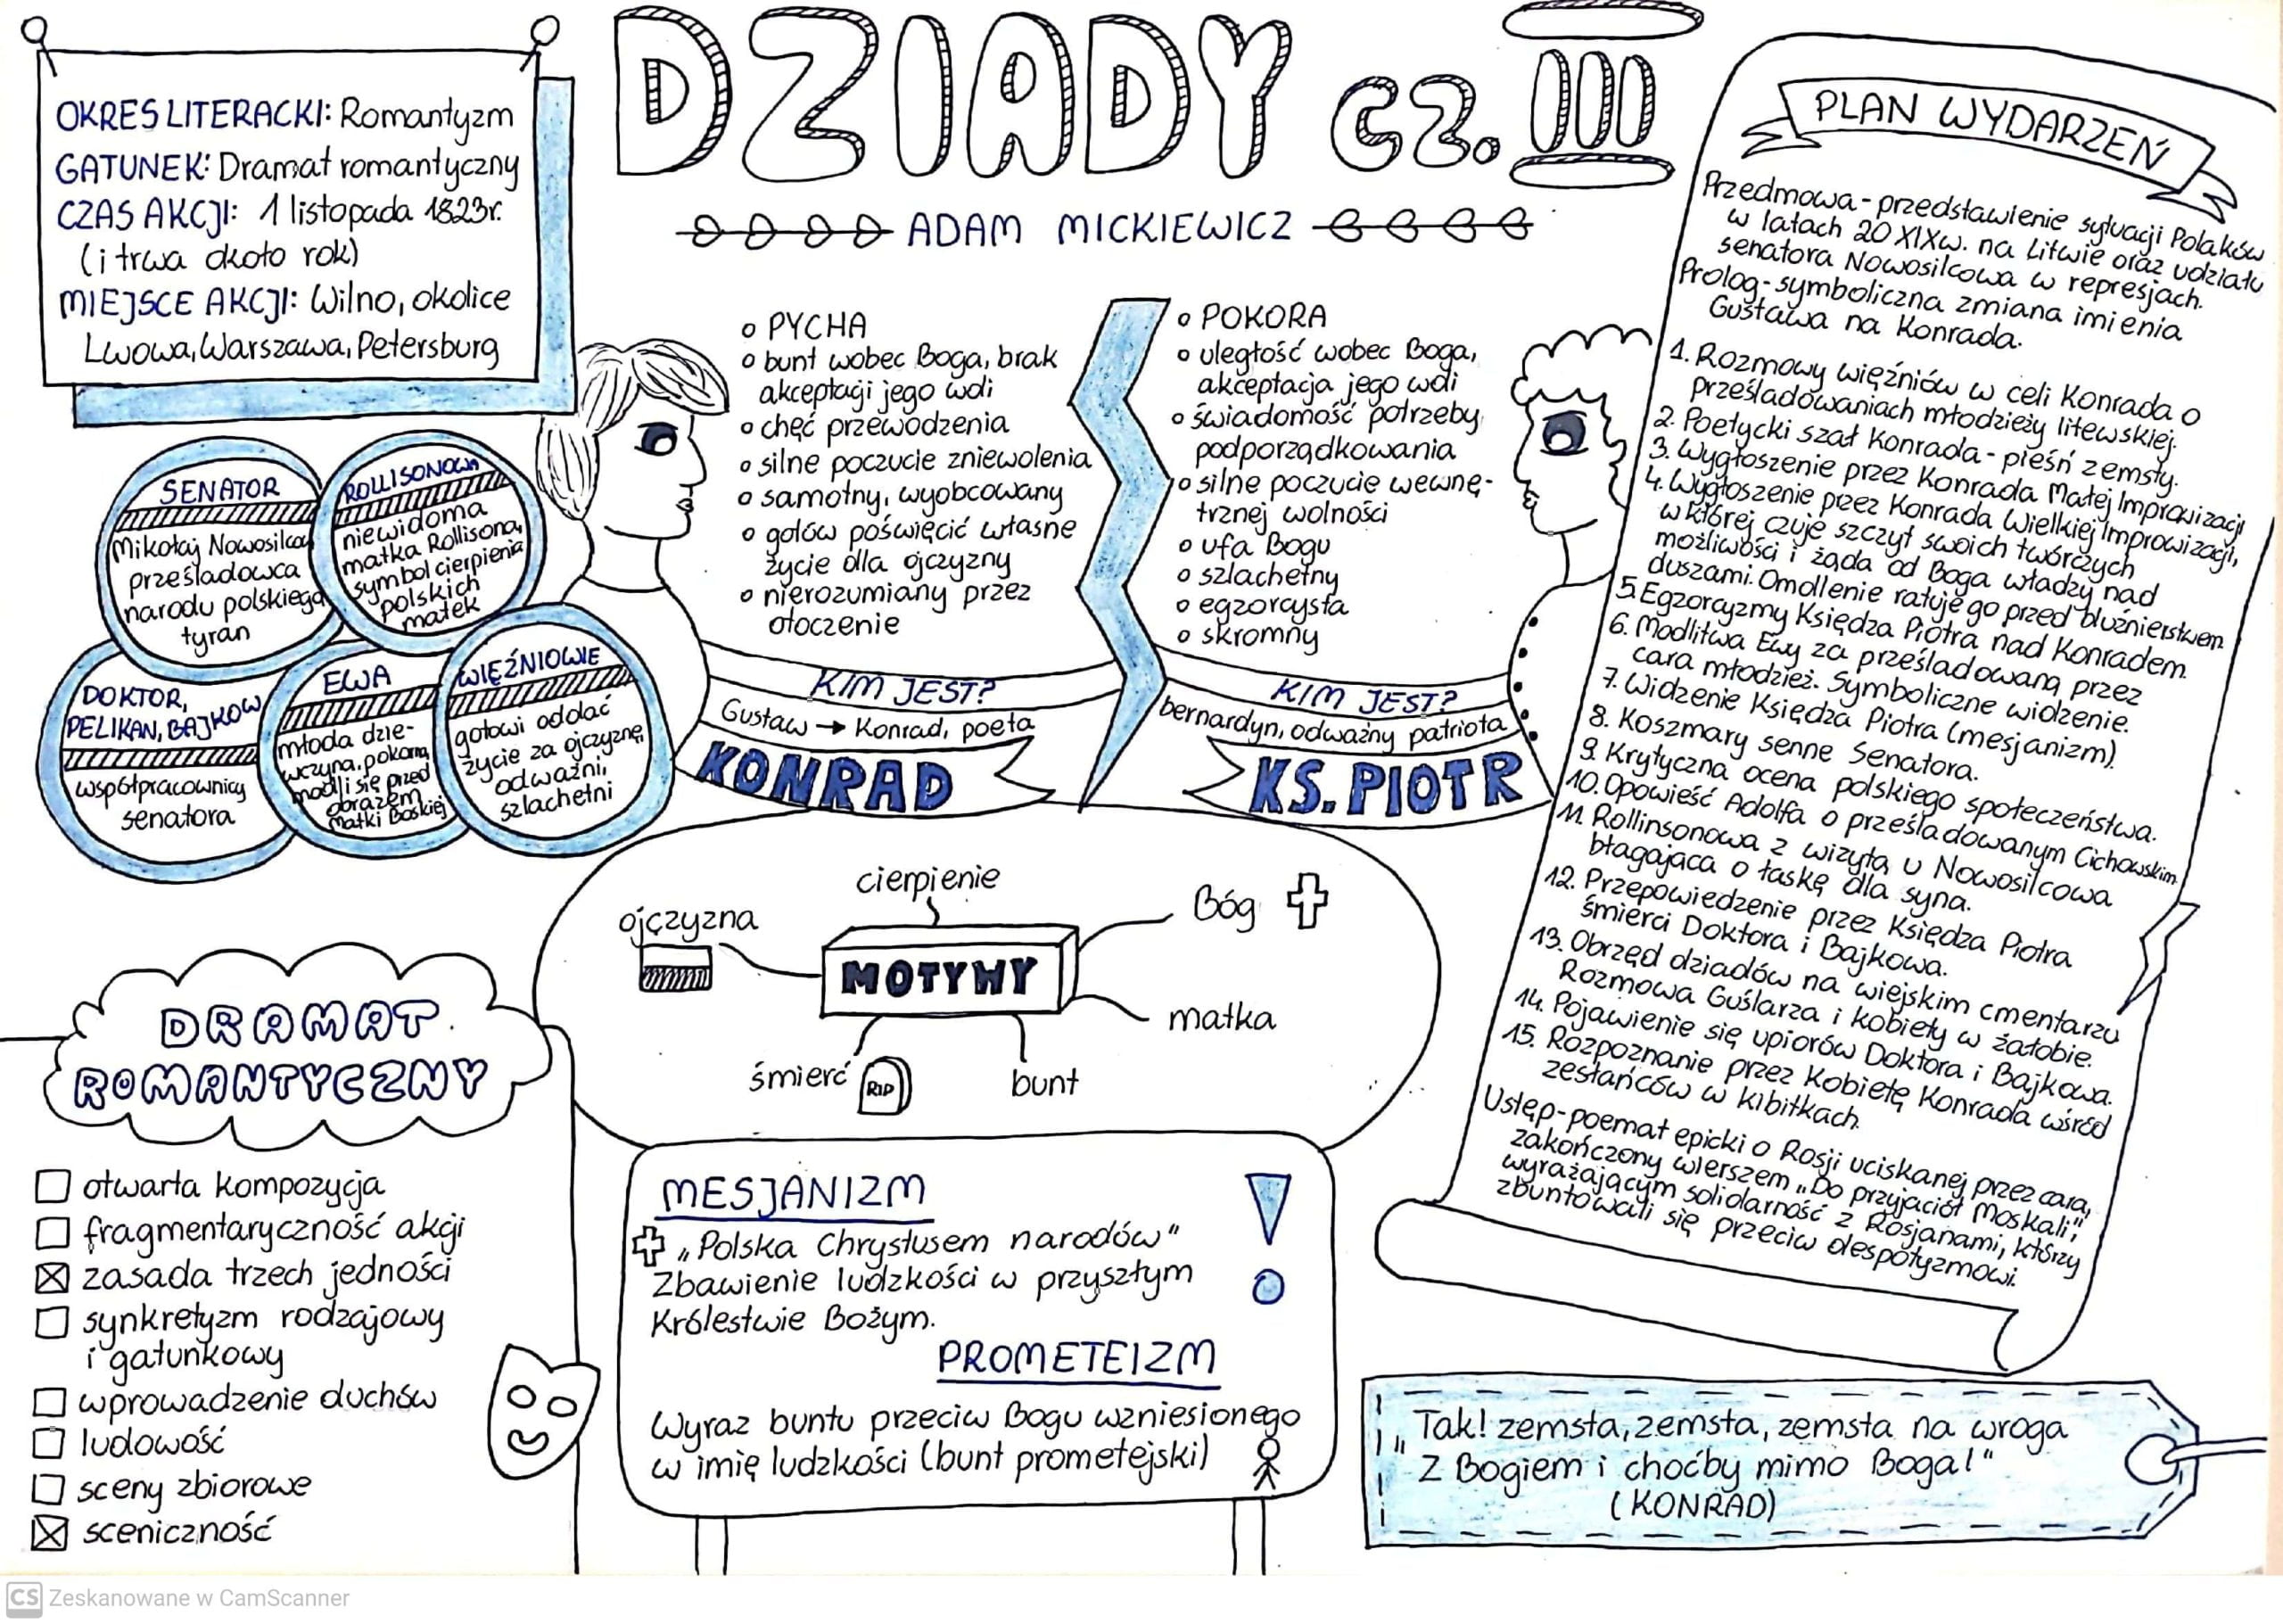 DZIADY cz. III
ADAM MICKIEWICZ
OKRES LITERACKI: Romantyzm
GATUNEK: Dramat romantyczny
CZAS AKCJI: 1 listopada 1823r.
(i trwa około rok)
MIEJSCE AKCJI: Wilno, okolice
Lwowa, Warszawa, Petersburg
SENATOR
Mikołaj Nowosilcow
prześladowca
narodu polskiego
tyran
ROLLISONOWA
niewidoma
matka Rollisona,
symbol cierpienia
polskich
matek
DOKTOR,
PELIKAN, BAJKOW
współpracownicy
senatora
EWA
młoda dzie-
wczyna, pokorna,
modli się przed
obrazem
Matki Boskiej
WIĘŹNIOWIE
gotowi oddać
życie za ojczyznę,
odważni,
szlachetni
o PYCHA
o bunt wobec Boga, brak
akceptacji jego woli
o chęć przewodzenia
o silne poczucie zniewolenia
o samotny, wyobcowany
o gotów poświęcić własne
życie dla ojczyzny
o nierozumiany przez
otoczenie
KIM JEST?
Gustaw → Konrad, poeta
KONRAD
o POKORA
o uległość wobec Boga,
akceptacja jego woli
o świadomość potrzeby
podporządkowania
o silne poczucie wewnę-
trznej wolności
o ufa Bogu
o szlachetny
o egzorcysta
o skromny
KIM JEST?
bernardyn, odważny patriota
KS. PIOTR
MOTYWY
ojczyzna
cierpienie
Bóg
matka
bunt
śmierć
RIP
DRAMAT
ROMANTYCZNY
☐ otwarta kompozycja
☐ fragmentaryczność akcji
☒ zasada trzech jedności
☐ synkretyzm rodzajowy
i gatunkowy
☐ wprowadzenie duchów
☐ ludowość
☐ sceny zbiorowe
☒ sceniczność
MESJANIZM
„Polska Chrystusem narodów"
Zbawienie ludzkości w przyszłym
Królestwie Bożym.
PROMETEIZM
Wyraz buntu przeciw Bogu wzniesionego
w imię ludzkości (bunt prometejski)
PLAN WYDARZEŃ
Przedmowa - przedstawienie sytuacji Polaków
w latach 20 XIXw. na Litwie oraz udziału
senatora Nowosilcowa w represjach.
Prolog - symboliczna zmiana imienia
Gustawa na Konrada.
1. Rozmowy więźniów w celi Konrada o
prześladowaniach młodzieży litewskiej.
2. Poetycki szał Konrada - pieśń zemsty.
3. Wygłoszenie przez Konrada Małej Improwizacji
4. Wygłoszenie przez Konrada Wielkiej Improwizacji,
w której czuje szczyt swoich twórczych
możliwości i żąda od Boga władzy nad
duszami. Omdlenie ratuje go przed bluźnierstwem.
5. Egzorcyzmy Księdza Piotra nad Konradem.
6. Modlitwa Ewy za prześladowaną przez
cara młodzież. Symboliczne widzenie.
7. Widzenie Księdza Piotra (mesjanizm).
8. Koszmary senne Senatora.
9. Krytyczna ocena polskiego społeczeństwa.
10. Opowieść Adolfa o prześladowanym Cichowskim.
11. Rollinsonowa z wizytą u Nowosilcowa
błagająca o łaskę dla syna.
12. Przepowiedzenie przez Księdza Piotra
śmierci Doktora i Bajkowa.
13. Obrzęd dziadów na wiejskim cmentarzu
Rozmowa Guślarza i kobiety w żałobie.
14. Pojawienie się upiorów Doktora i Bajkowa.
15. Rozpoznanie przez Kobietę Konrada wśród
zesłańców w kibitkach.
Ustęp - poemat epicki o Rosji uciskanej przez cara,
zakończony wierszem „Do przyjaciół Moskali",
wyrażającym solidarność z Rosjanami, którzy
zbuntowali się przeciw despotyzmowi.
„Tak! zemsta, zemsta, zemsta na wroga
Z Bogiem i choćby mimo Boga!"
(KONRAD)
CS Zeskanowane w CamScanner